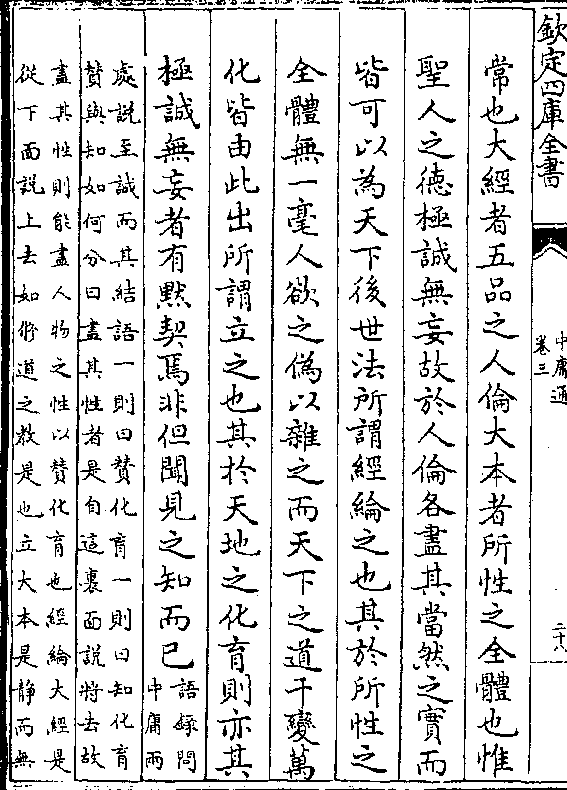 欽定四庫全書
中庸通
卷三
二十八
常也大經者五品之人倫大本者所性之全體也惟
聖人之德極誠無妄故於人倫各盡其當然之實而
皆可以為天下後世法所謂經綸之也其於所性之
全體無一毫人欲之偽以雜之而天下之道千變萬
化皆由此出所謂立之也其於天地之化育則亦其
極誠無妄者有黙契焉非但聞見之知而已
語錄問
中庸兩
處説至誠而其結語一則曰贊化育一則曰知化育
贊與知如何分曰盡其性者是自這裏面説將去故
盡其性則能盡人物之性以贊化育也經綸大經是
從下面説上去如修道之教是也立大本是静而無